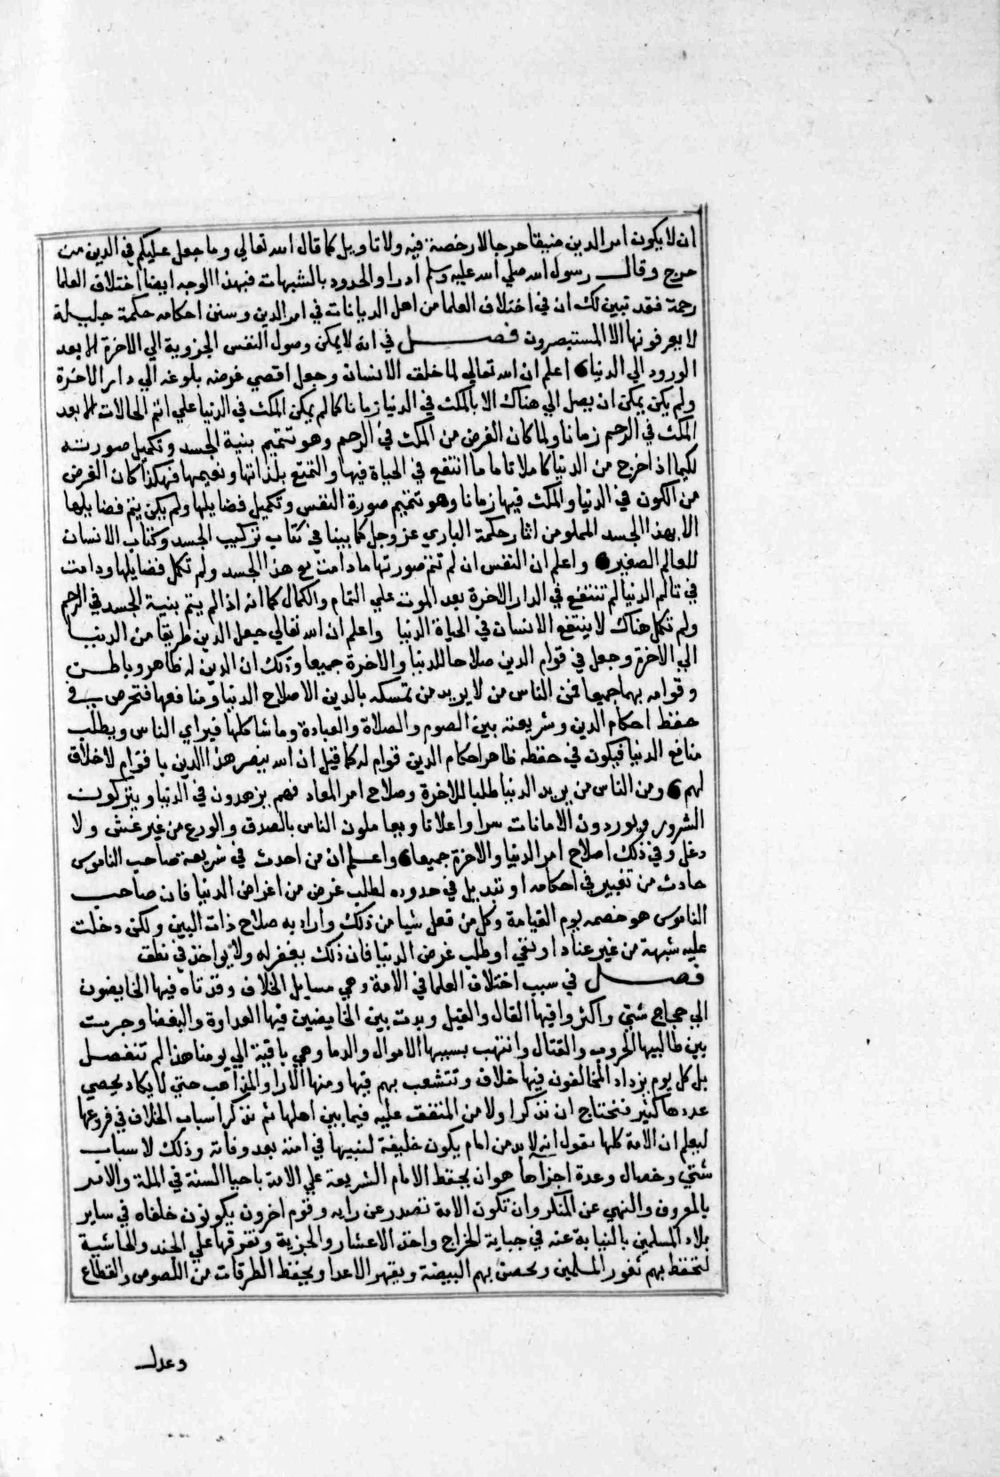 ان لا يكون امر الدين ضيقا حرجا لا رخصة فيه ولا تاويل كما قال الله تعالي وما جعل عليكم في الدين من
حرج وقال رسول الله صلي الله عليه وسلم ادراوا الحدود بالشبهات فبهذا الوجه ايضا اختلاف العلما
رحمة فقد تبين لك ان في اختلاف العلما من اهل الديانات في امر الدين وسنن احكامه حكمة جليلة
لا يعرفونها الا المستبصرون فصل في انه لا يمكن وصول النفس الجزوية الي الاخرة الا بعد
الورود الي الدنيا اعلم ان الله تعالي لما خلق الانسان وجعل اقصي غرضه بلوغه الي دار الاخرة
ولم يكن يمكن ان يصل الي هناك الا بالمكث في الدنيا زمانا كما لم يمكن المكث في الدنيا علي اتم الحالات الا بعد
المكث في الرحم زمانا ولما كان الغرض من المكث في الرحم وهو تتميم بنية الجسد وتكميل صورته
لكيما اذا خرج من الدنيا كاملا تاما ما انتفع في الحياة فيها والتمتع بلذاتها ونعيمها فهكذا كان الغرض
من الكون في الدنيا والمكث فيها زمانا وهو تتميم صورة النفس وتكميل فضايلها ولم يكن يتم فضايلها
الا بهذا الجسد المملو من اثار حكمة الباري عز وجل كما بينا في كتاب تركيب الجسد وكتاب الانسان
للعالم الصغير واعلم ان النفس ان لم تتم صورتها ما دامت مع هذا الجسد ولم تكمل فضايلها ودامت
في تالم الدنيا لم تنتفع في الدار الاخرة بعد الموت علي التمام والكمال كما انه اذا لم يتم بنية الجسد في الرحم
ولم تكمل هناك لا ينتفع الانسان في الحياة الدنيا واعلم ان الله تعالي جعل الدين طريقا من الدنيا
الي الاخرة وجعل في قوام الدين صلاحا للدنيا والاخرة جميعا وذلك ان الدين له ظاهر وباطن
وقوامه بهما جميعا فمن الناس من لا يريد من تمسكه بالدين الا صلاح الدنيا ومنافعها فتحرص في
حفظ احكام الدين وشريعته بين الصوم والصلاة والعبادة وما شاكلها فيراي الناس ويطلب
منافع الدنيا فيكون في حفظه ظاهر احكام الدين قوام له كما قيل ان الله ينصر هذا الدين باقوام لاخلاق
لهم ومن الناس من يريد الدنيا طلبا للاخرة وصلاح امر المعاد فهم يزهدون في الدنيا ويتركون
الشرور ويوردون الامانات سرا واعلانا ويعاملون الناس بالصدق والورع من غير غش ولا
دغل وفي ذلك اصلاح امر الدنيا والاخرة جميعا واعلم ان من احدث في شريعة صاحب الناموس
حادث من تغيير في احكامه او تبديل في حدوده لطلب غرض من اغراض الدنيا فان صاحب
الناموس هو خصمه يوم القيامة وكل من فعل شيا من ذلك واراد به صلاح ذات البين ولكن دخلت
عليه شبهة من غير عنادا وبغي او طلب غرض الدنيا فان ذلك يغفر له ولا يواخذ في
فصل في سبب اختلاف العلما في الامة وهي مسايل الخلاف وقد تاه فيها الخايضون
الي حجاج شتي واكثروا فيها القال والقيل وبدت بين الخايضين فيها العداوة والبغضا وجرت
بين طالبيها الحروب والقتال وانتهب بسببها الاموال والدما وهي باقية الي يومنا هذا لم تنفصل
بل كل يوم يزداد المخالفون فيها خلاف وتتشعب بهم فيها ومنها الارا والمذاهب حتي لا يكاد يحصي
عددها كثير فنحتاج ان نذكر اولا من المتفق عليه فيما بين اهلها ثم نذكر اسباب الخلاف في فروعها
ليعلم ان الامة كلها تقول انه لا بد من امام يكون خليفة لنبيها في امته بعد وفاته وذلك لاسباب
شتي وخصال وعدة اجزاها هو ان يحفظ الامام الشريعة علي الامة باحيا السنة في الملة والامر
بالمعروف والنهي عن المنكر وان تكون الامة تصدر عن رايه وقوم اخرون يكونون خلفاه في ساير
بلاد المسلمين بالنيابة عنه في جباية الخراج واخذ الاعشار والجزية وتفرقها علي الجند والحاشية
لتحفظ بهم ثغور المسلمين وتحصن بهم البيضة ويقهر الاعدا ويحفظ الطرقات من اللصوص والقطاع
وعدل